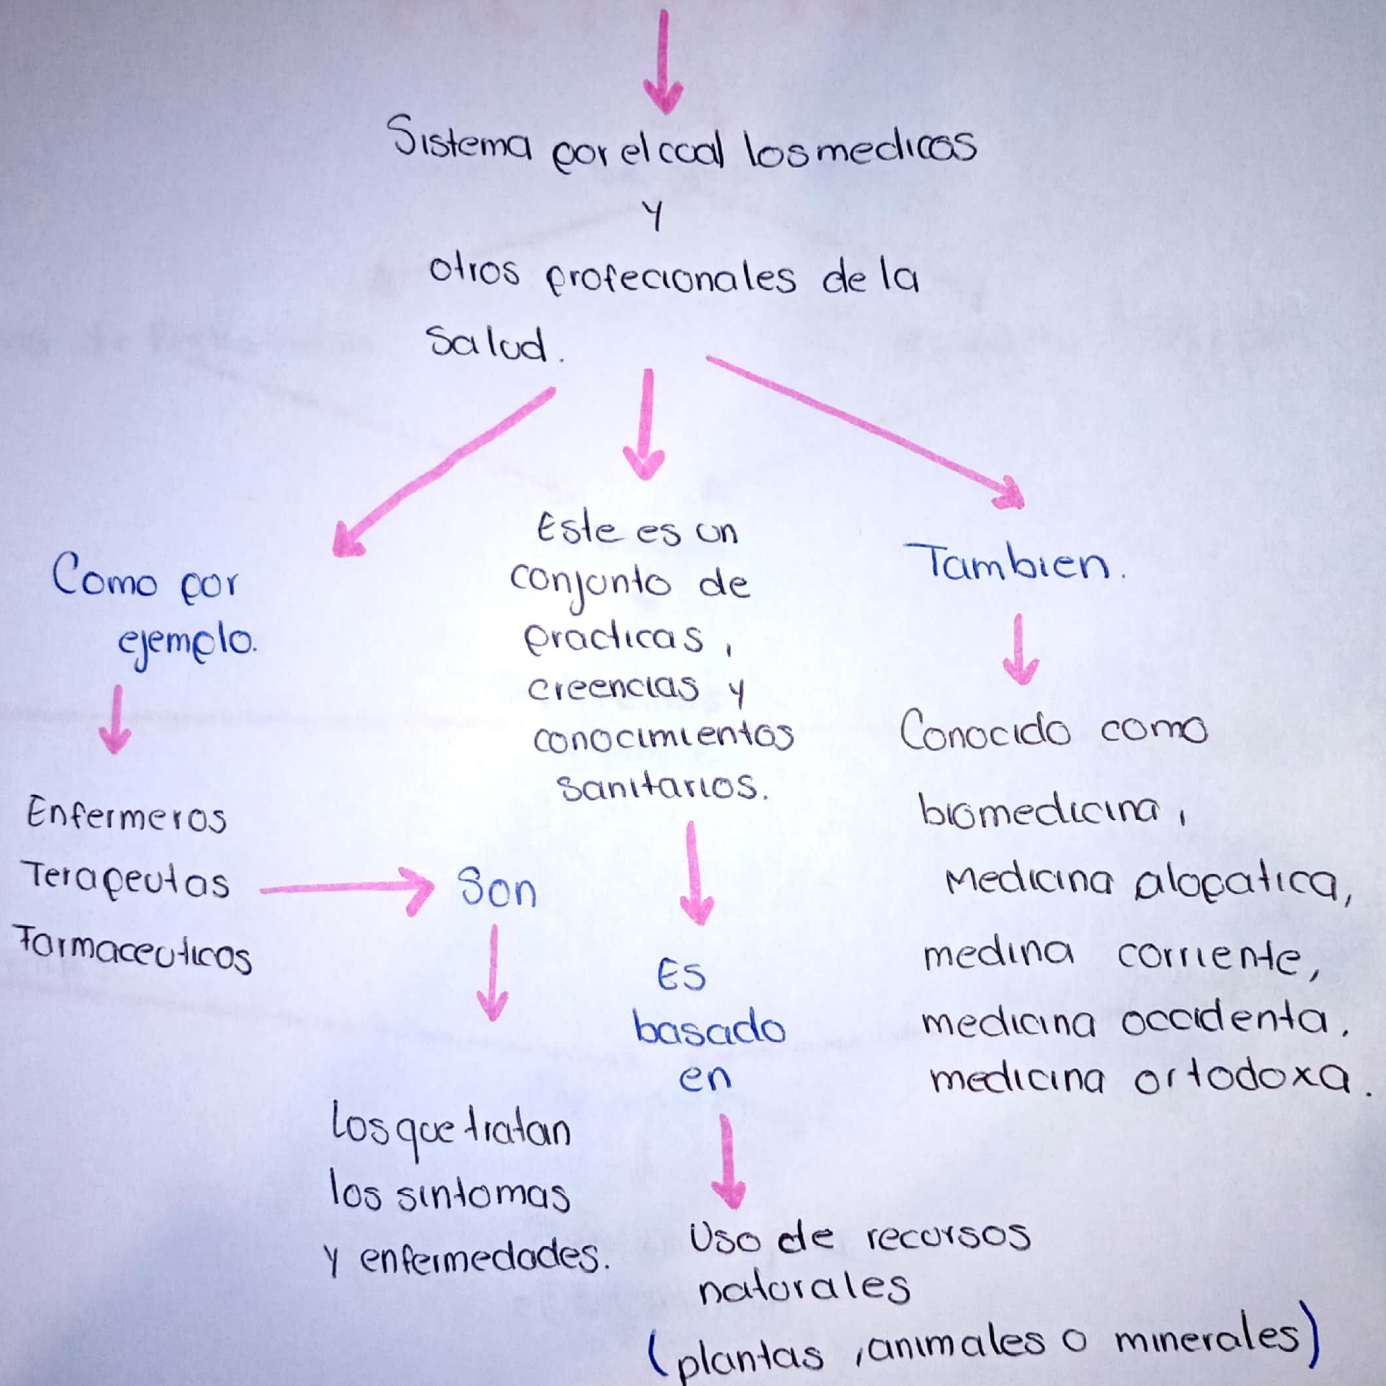 Sistema por el cual los medicos
y
otros profecionales de la
Salud.
Como por
ejemplo.
Enfermeros
Terapeutas
Farmaceuticos
Son
los que tratan
los sintomas
y enfermedades.
Este es un
conjunto de
practicas,
creencias y
conocimientos
sanitarios.
Es
basado
en
Uso de recursos
naturales
(plantas, animales o minerales)
Tambien.
Conocido como
biomedicina,
Medicina alopatica,
medina corriente,
medicina occidenta,
medicina ortodoxa.